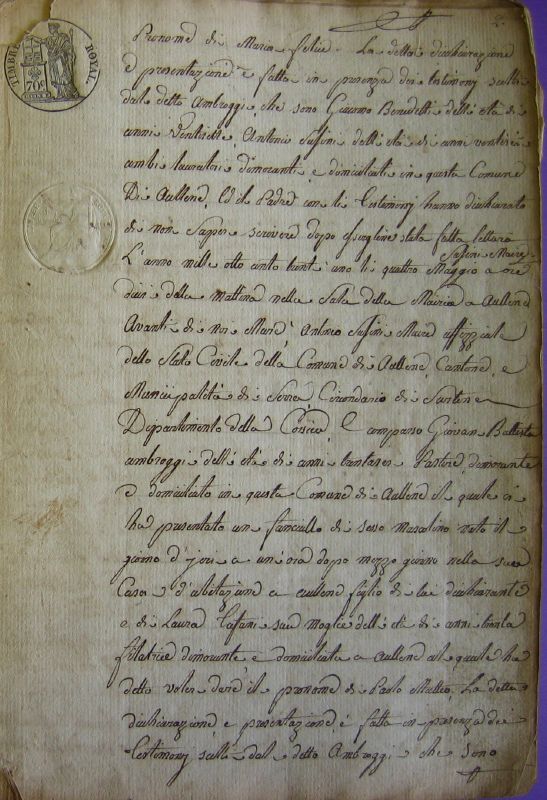 2.
TIMBRE ROYAL.
70c
Pronome di Maria felice. La detta dichiarazione
e presentazione è fatta in presenza dei testimonj scelti
dal detto Ambroggi, che sono Giacomo Benedetti dell'età di
anni ventisette, Antonio Susini dell'età di anni ventisei
ambi lavoratori dimoranti e domiciliati in questa Comune
Di Aullene, Ed il Padre con li Testimonj hanno dichiarato
di non Sapere scrivere dopo essergline stata fatta lettura
Susini Maire
L'anno mille otto cento vent'uno li quattro Maggio a ore
dieci della mattina nella Sala della Mairia a Aullene
Avanti di noi Maire Antonio Susini Maire uffiziale
dello Stato Civile della Comune di Aullene, Cantone, e
Municipalità di Serra, Circondario di Sartene
Dipartimento della Corsica, è comparso Giovan Battista
ambroggi dell'età di anni trentasei Pastore, dimorante
e domiciliato in questa Comune di Aullene il quale ci
ha presentato un fanciullo di sesso Mascolino nato il
giorno d'jeri a un'ora dopo mezzo giorno nella sua
Casa d'abitazione a aullene figlio di lui dichiarante
e di Laura sua moglie dell'età di anni trenta
filatrice dimorante e domiciliata a Aullene al quale ha
detto voler dare il pronome di Paolo Matteo. La detta
dichiarazione, e presentazione è fatta in presenza dei
Testimonj scelti dal detto Ambroggi che sono